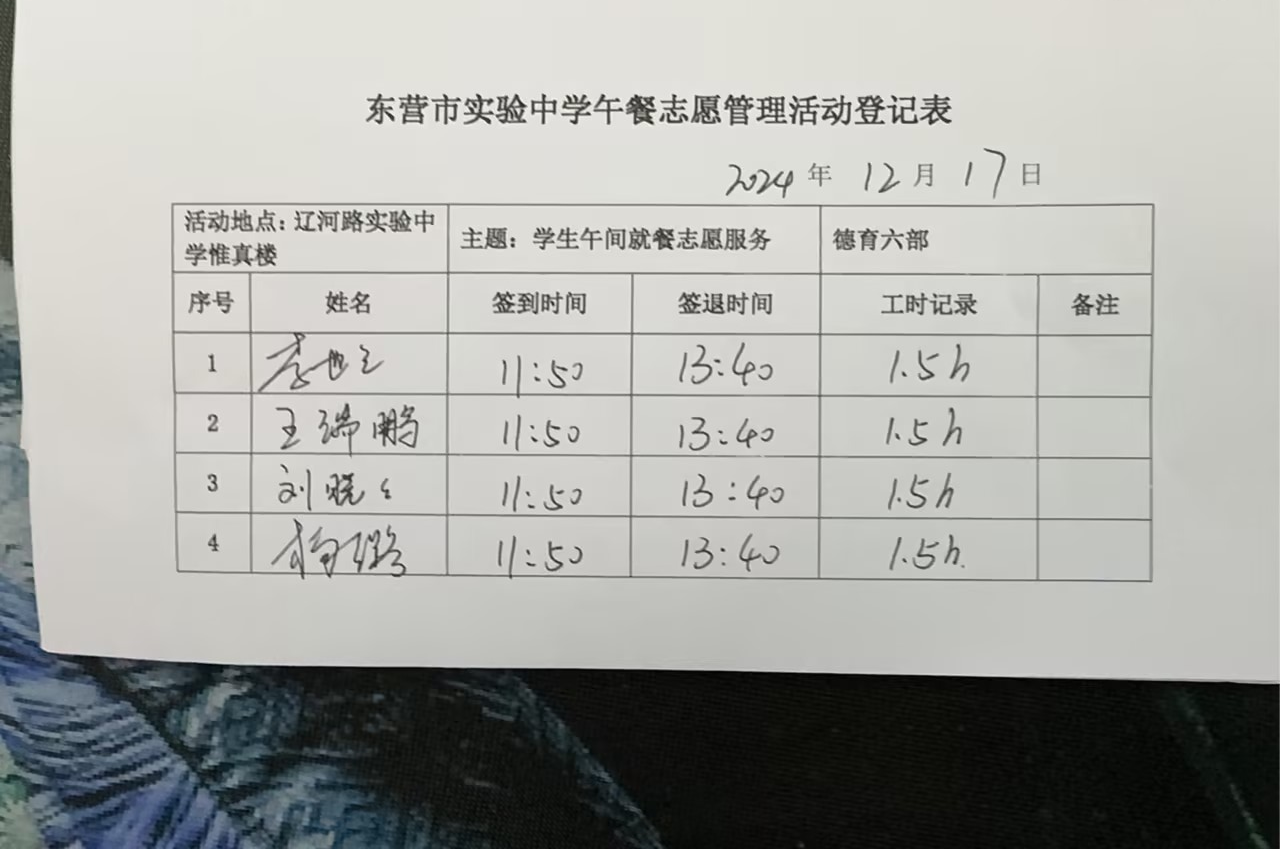 东营市实验中学午餐志愿管理活动登记表
2024 年 12 月 17 日
活动地点：辽河路实验中学惟真楼 主题：学生午间就餐志愿服务 德育六部
序号 姓名 签到时间 签退时间 工时记录 备注
1 11:50 13:40 1.5h
2 王瑞鹏 11:50 13:40 1.5h
3 刘晓 11:50 13:40 1.5h
4 杨璐 11:50 13:40 1.5h.